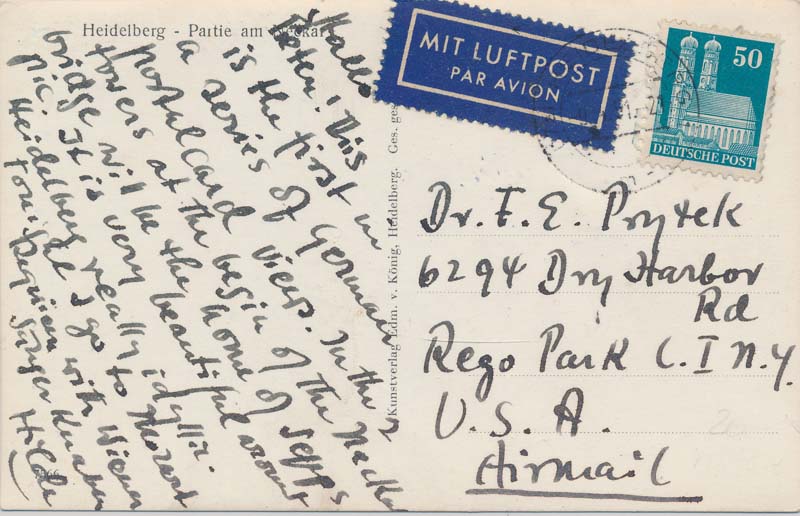 Heidelberg - Partie am Neckar
Hallo
Peter! This
is the first in
a series of German
postalcard views. In the 2
towers at the begin of the Neckar
bridge will be the home of Sepps
pic. It is very beautiful around
Heidelberg really idyllic.
Tonight I go to Mozart
Requiem with Wiener
Sängerknaben
Kunstverlag Edm. v. König, Heidelberg. Ges. ges
MIT LUFTPOST
PAR AVION
50
DEUTSCHE POST
Dr. F. E. Prytek
6294 Dry Harbor
Rd
Rego Park L.I N.Y.
U.S.A.
Airmail